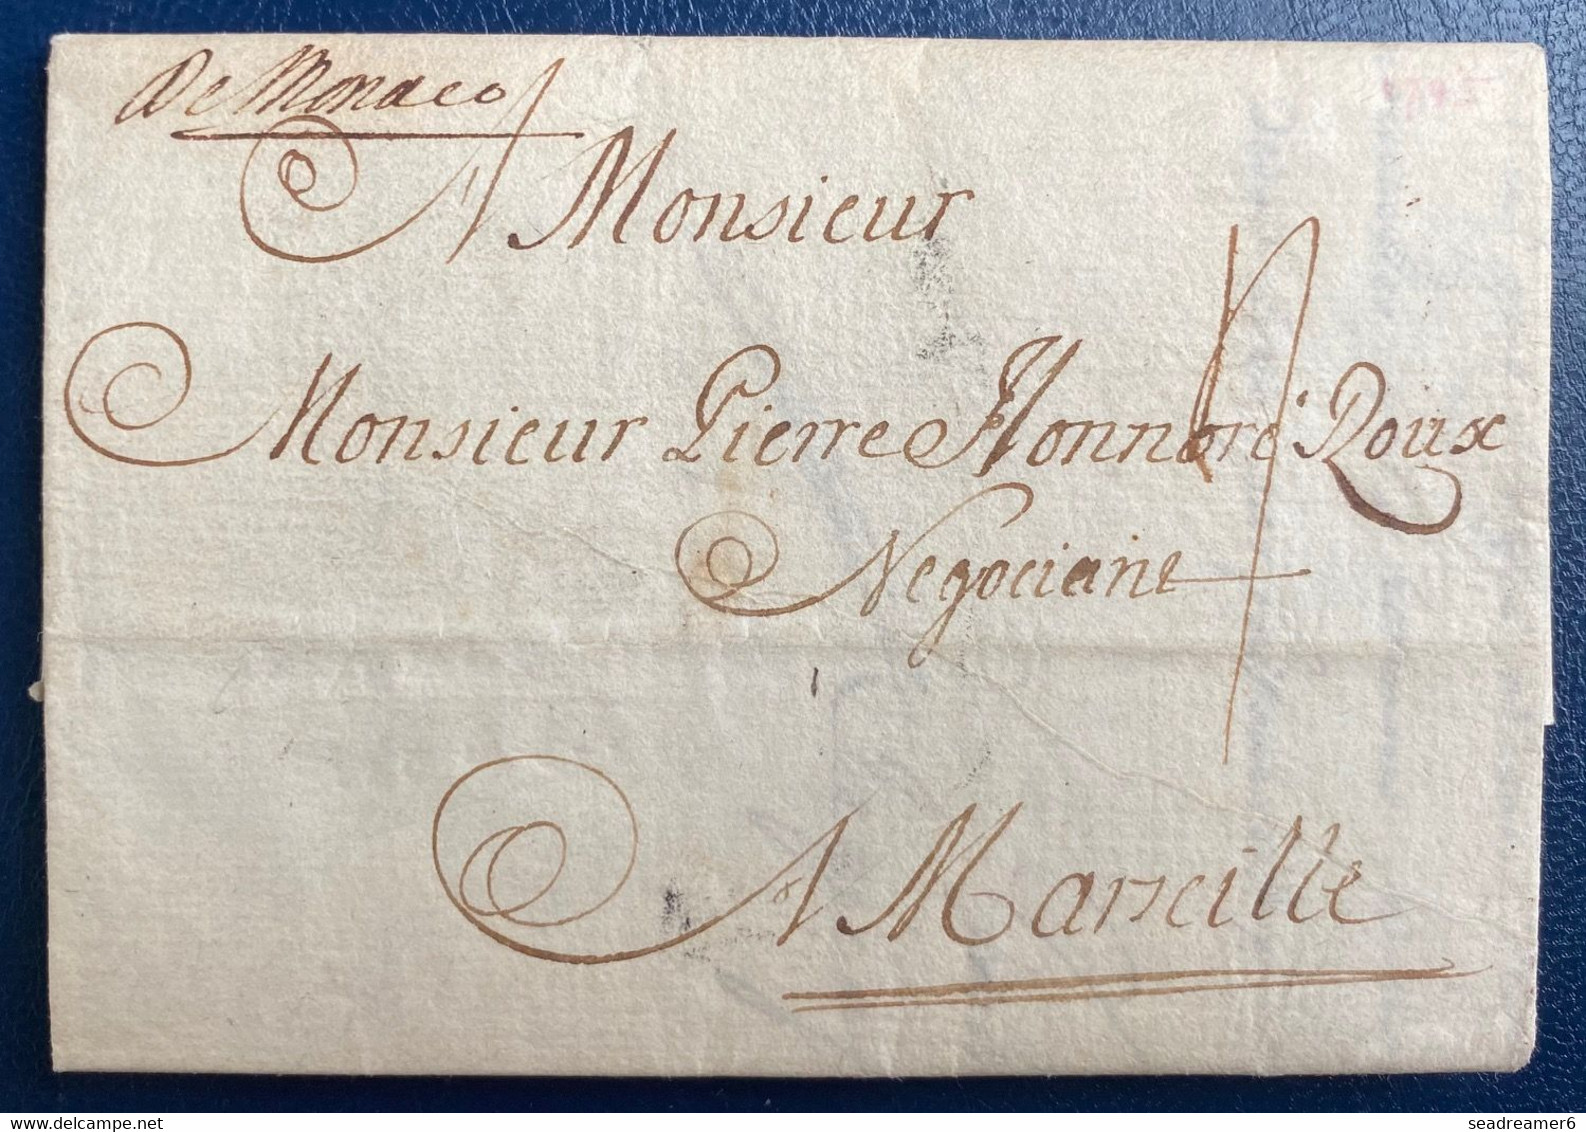 De Monaco
A Monsieur
Monsieur Pierre Honnoré Roux
Negociant
A Marseille
delcampe.net
seadreamer6